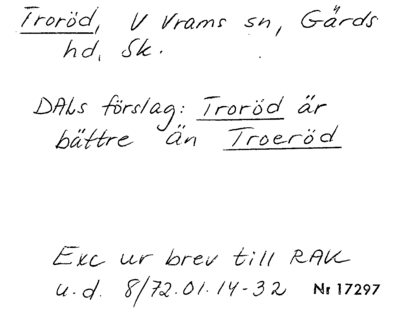 Troröd, V Vrams sn, Gärds
hd, Sk.
DALs förslag: Troröd är
bättre än Troeröd
Exc ur brev till RAK
u.d. 8/72.01.14-32 Nr 17297